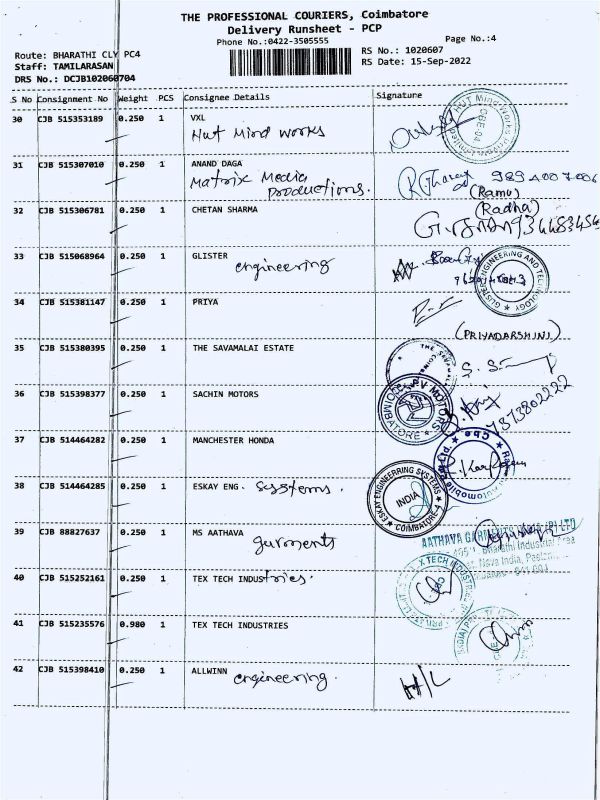 THE PROFESSIONAL COURIERS, Coimbatore
Delivery Runsheet - PCP
Phone No.:0422-3505555
Page No.:4
Route: BHARATHI CLY PC4
RS No.: 1020607
Staff: TAMILARASAN
RS Date: 15-Sep-2022
DRS No.: DCJB102060704
S No Consignment No Weight PCS Consignee Details Signature
30 CJB 515353189 0.250 1 VXL
Hut Mind Works
31 CJB 515307010 0.250 1 ANAND DAGA
Matrix Media
Productions.
(Ramu)
32 CJB 515306781 0.250 1 CHETAN SHARMA
(Radha)
33 CJB 515068964 0.250 1 GLISTER
engineering
ENGINEERING AND TECHNOLOGY
34 CJB 515381147 0.250 1 PRIYA
(PRIYADARSHINI)
35 CJB 515380395 0.250 1 THE SAVAMALAI ESTATE
36 CJB 515398377 0.250 1 SACHIN MOTORS
7373802222
37 CJB 514464282 0.250 1 MANCHESTER HONDA
38 CJB 514464285 0.250 1 ESKAY ENG. Systems.
ESKAY ENGINEERING SYSTEMS
INDIA
COIMBATORE-4
39 CJB 88827637 0.250 1 MS AATHAVA
garments
AATHAVA GARMENTS
Bharathi Industrial Area
40 CJB 515252161 0.250 1 TEX TECH INDUStries.
41 CJB 515235576 0.980 1 TEX TECH INDUSTRIES
42 CJB 515398410 0.250 1 ALLWINN
engineering.
H/L